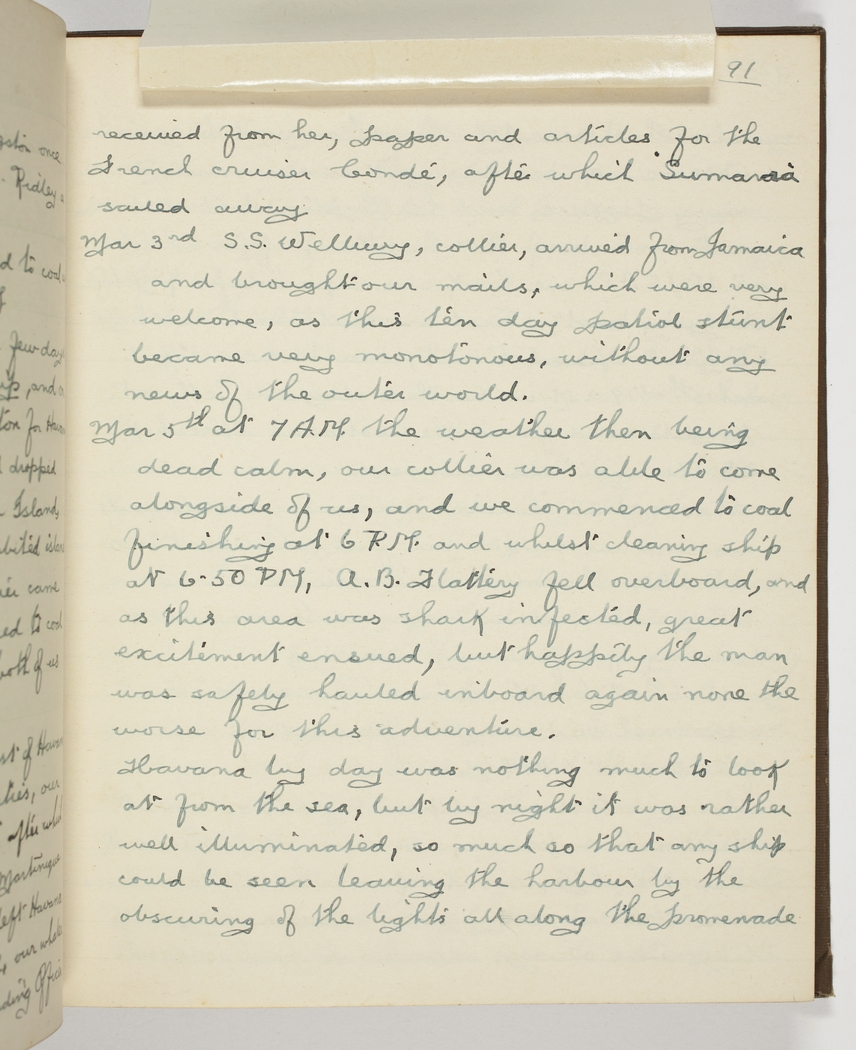 91
received from her, paper and articles for the
French cruiser Condé, after which "Sumar
sailed away
Mar 3rd S.S. Wellbury, collier, arrived from Jamaica
and brought our mails, which were very
welcome, as this ten day patrol stunt
became very monotonous, without any
news of the outer world.
Mar 5th at 7 A.M. the weather then being
dead calm, our collier was able to come
alongside of us, and we commenced to coal
finishing at 6 P.M. and whilst cleaning ship
at 6-50 PM, A.B. Flattery fell overboard, and
as this area was shark infested, great
excitement ensued, but happily the man
was safely hauled inboard again none the
worse for this adventure.
Havana by day was nothing much to look
at from the sea, but by night it was rather
well illuminated, so much so that any ship
could be seen leaving the harbour by the
obscuring of the lights all along the promenade
gston once
Ridley
d to coal
few day
, and
ton for Hav
dropped
Island,
bited islan
ier came
ed to coal
both of us
st of Havan
ties, our
after whi
Martinique
left Havana
our whale
ding Offic